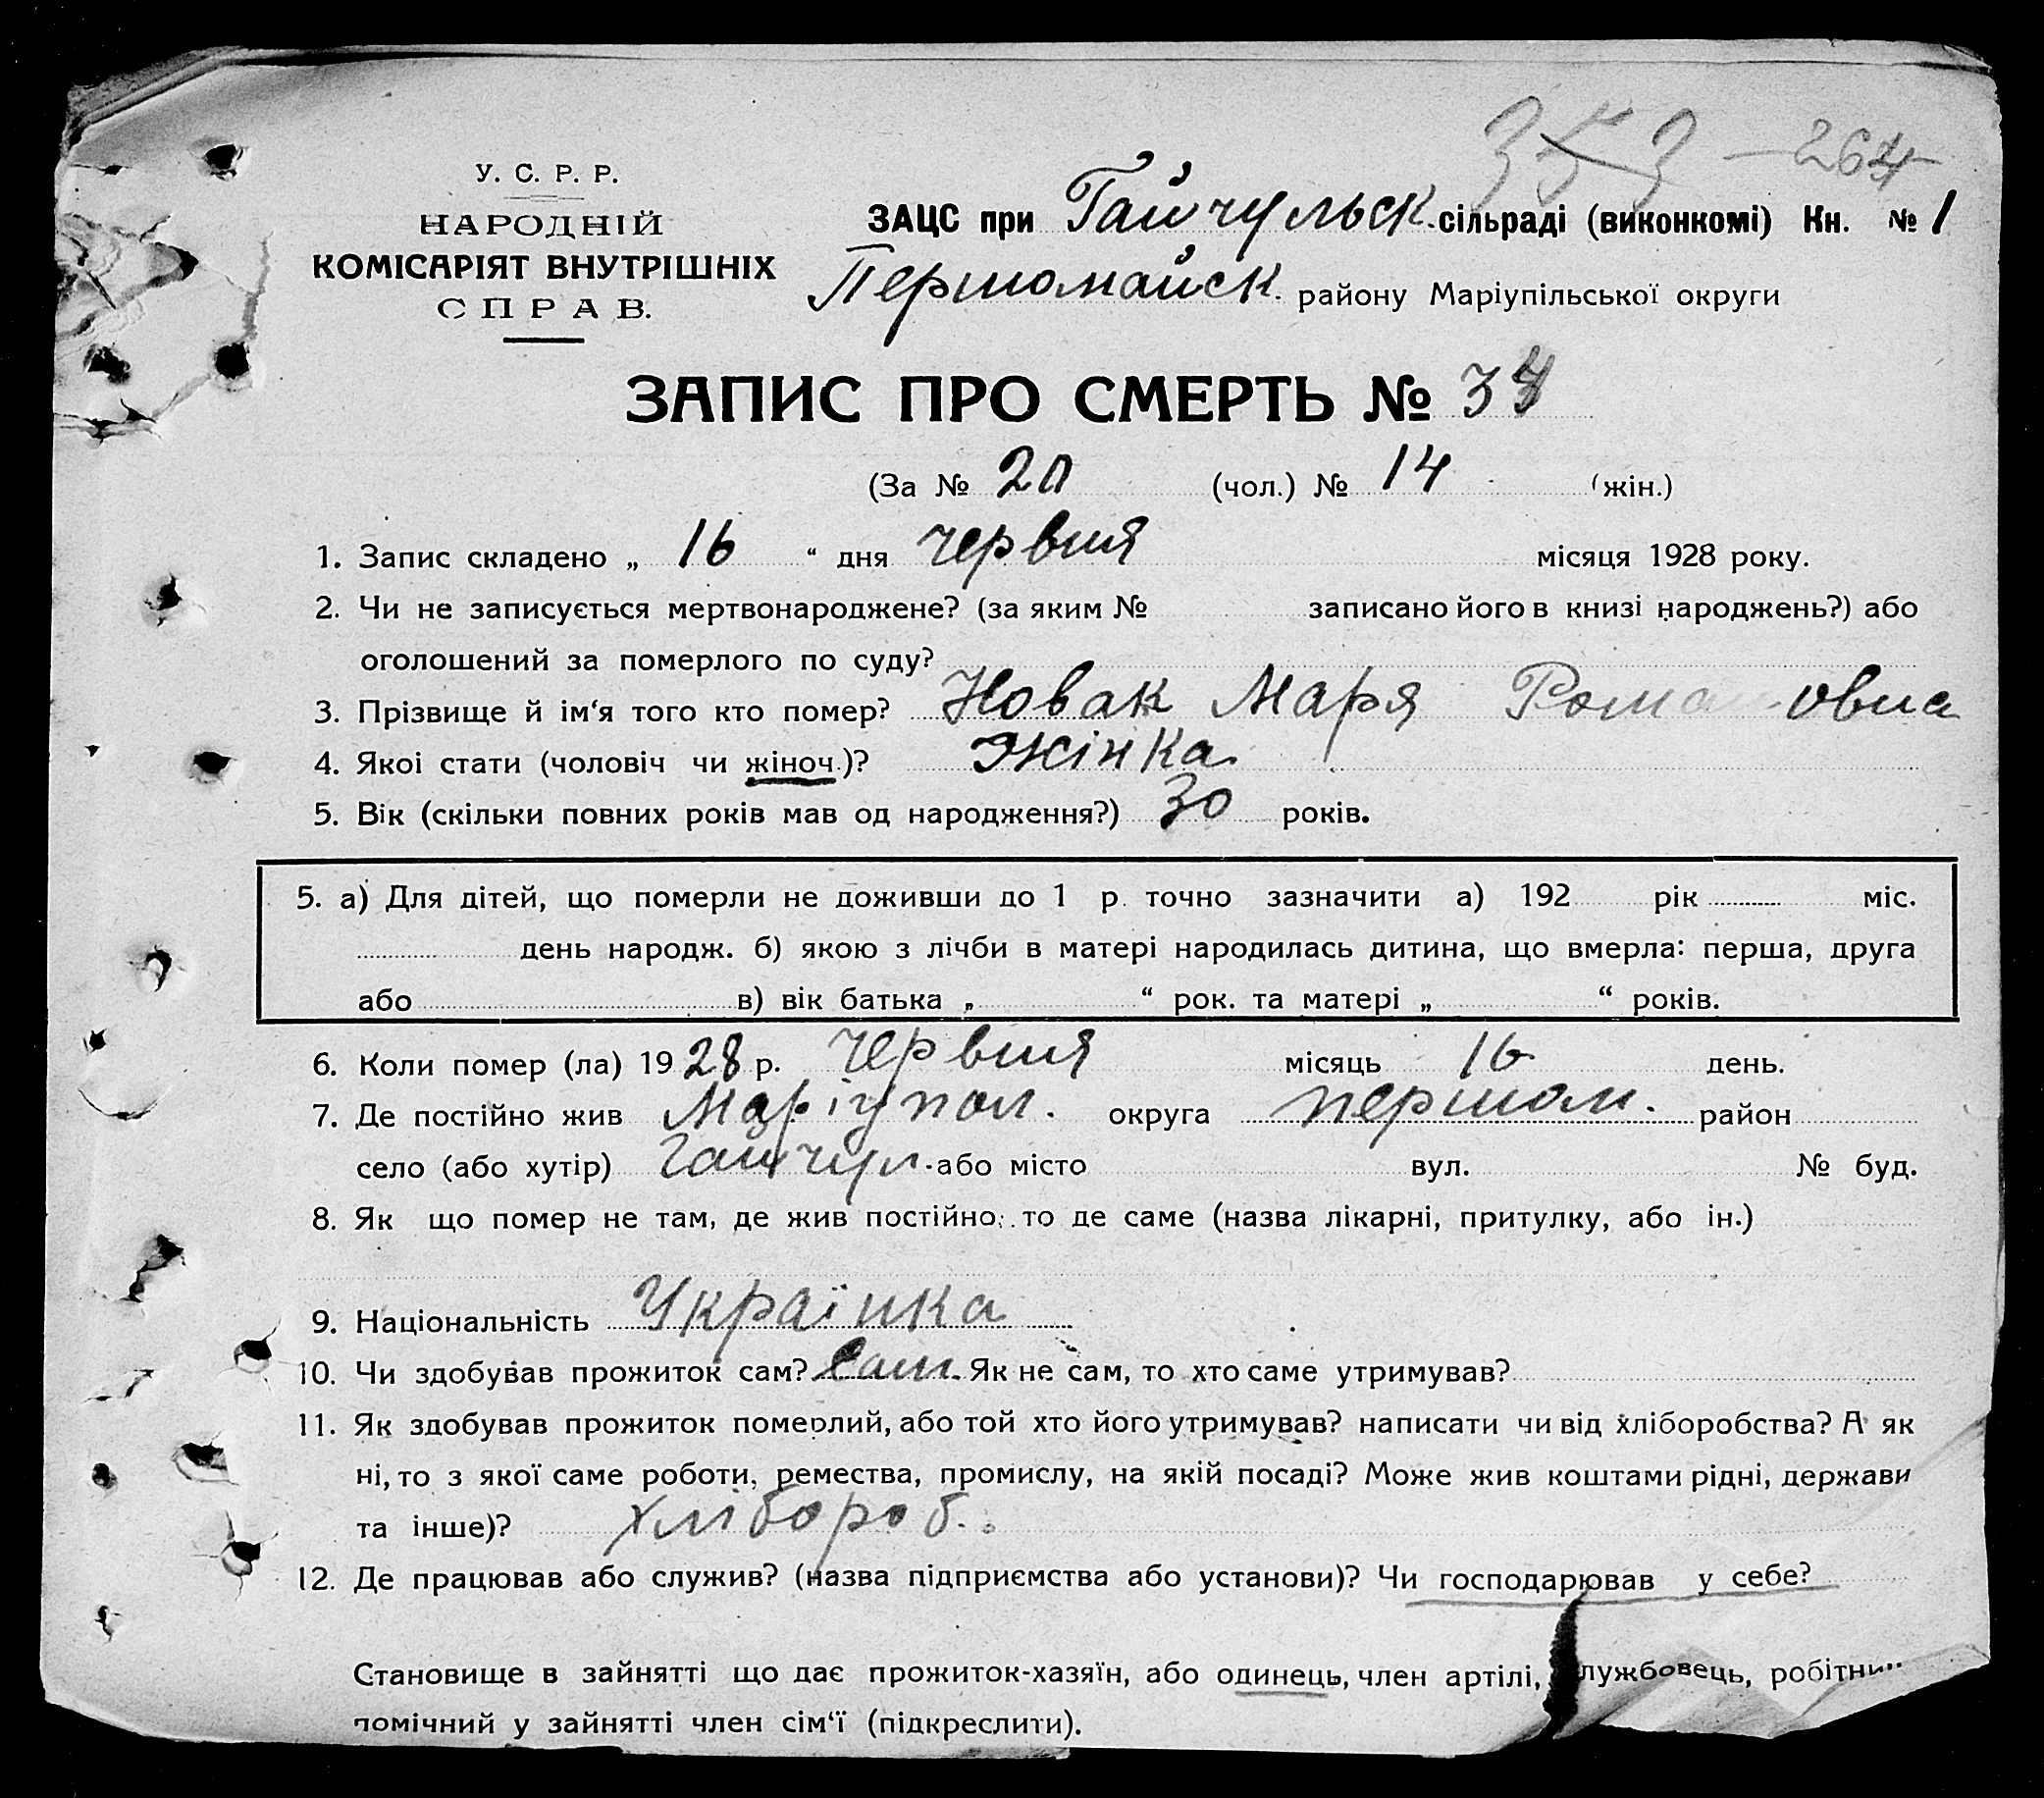 353 — 264
У. С. Р. Р.
НАРОДНІЙ
КОМІСАРІЯТ ВНУТРІШНІХ
СПРАВ.
ЗАЦС при Гайчульск. сільраді (виконкомі) Кн. № 1
Першомайск. району Маріупільської округи
ЗАПИС ПРО СМЕРТЬ № 34
(За № 20 (чол.) № 14 (жін.)
1. Запис складено „ 16 “ дня червня місяця 1928 року.
2. Чи не записується мертвонароджене? (за яким № записано його в книзі народжень?) або
оголошений за померлого по суду?
3. Прізвище й ім‘я того кто помер? Новак Маря Романовна
4. Якої стати (чоловіч чи жіноч.)? жінка
5. Вік (скільки повних років мав од народження?) 30 років.
5. а) Для дітей, що померли не доживши до 1 р. точно зазначити а) 192 рік міс.
день народж. б) якою з лічби в матері народилась дитина, що вмерла: перша, друга
або в) вік батька „ “ рок. та матері „ “ років.
6. Коли помер (ла) 1928 р. червня місяць 16 день.
7. Де постійно жив Маріупол. округа першом. район
село (або хутір) Гайчул. або місто вул. № буд.
8. Як що помер не там, де жив постійно, то де саме (назва лікарні, притулку, або ін.)
9. Національність Українка
10. Чи здобував прожиток сам? Сам. Як не сам, то хто саме утримував?
11. Як здобував прожиток померлий, або той хто його утримував? написати чи від хліборобства? А як
ні, то з якої саме роботи, ремества, промислу, на якій посаді? Може жив коштами рідні, держави
та інше)? хлібороб.
12. Де працював або служив? (назва підприємства або установи)? Чи господарював у себе?
Становище в зайнятті що дає прожиток-хазяїн, або одинець, член артілі, лужбовець, робітни
помічний у зайнятті член сім‘ї (підкреслити).